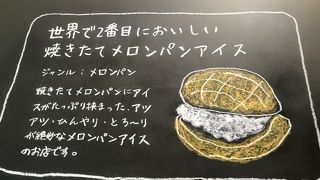 世界で2番目においしい
焼きたてメロンパンアイス
ジャンル：メロンパン
焼きたてメロンパンにアイ
スがたっぷり挟まった、アツ
アツ・ひんやり・とろ〜り
が絶妙なメロンパンアイス
のお店です。